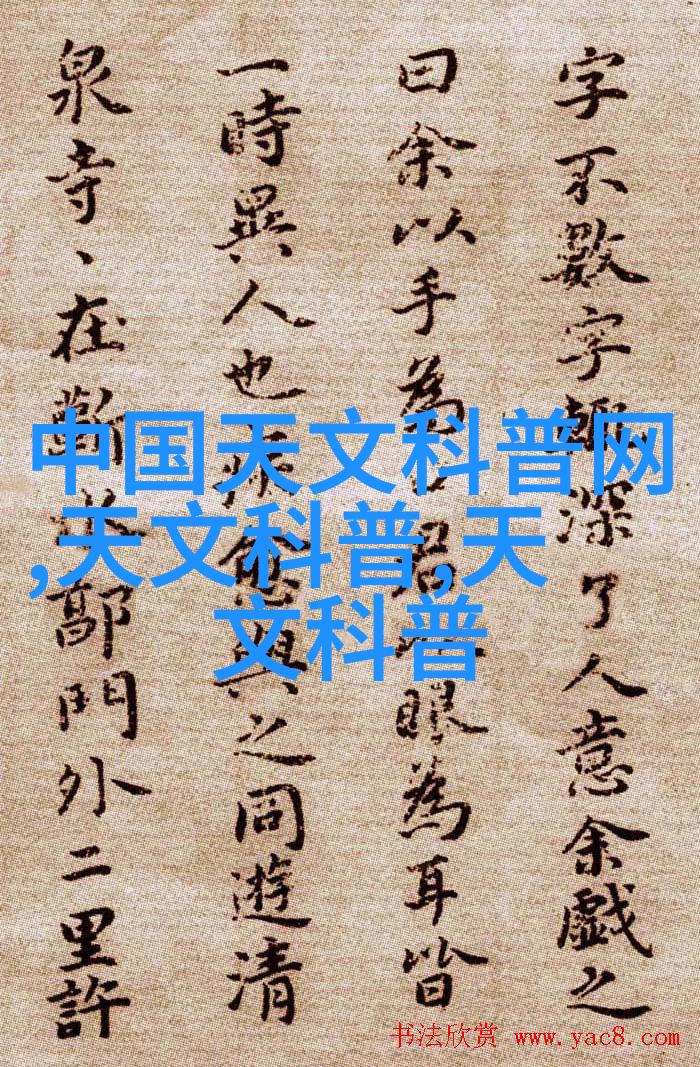 字不數字輒深了人意余戲之
曰余以手為眼為耳皆
一時異人也疾愈與之同遊清
泉寺、在蘄水郭門外二里許
中国天文科普网
,天文科普,天
文科普
书法欣赏 www.yac8.com